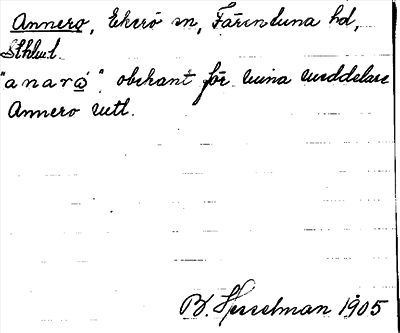 Annerö, Ekerö sn, Färentuna hd,
Sthlm l.
"anarö". obekant för mina meddelare
Annerö uttl.
B. Hesselman 1905